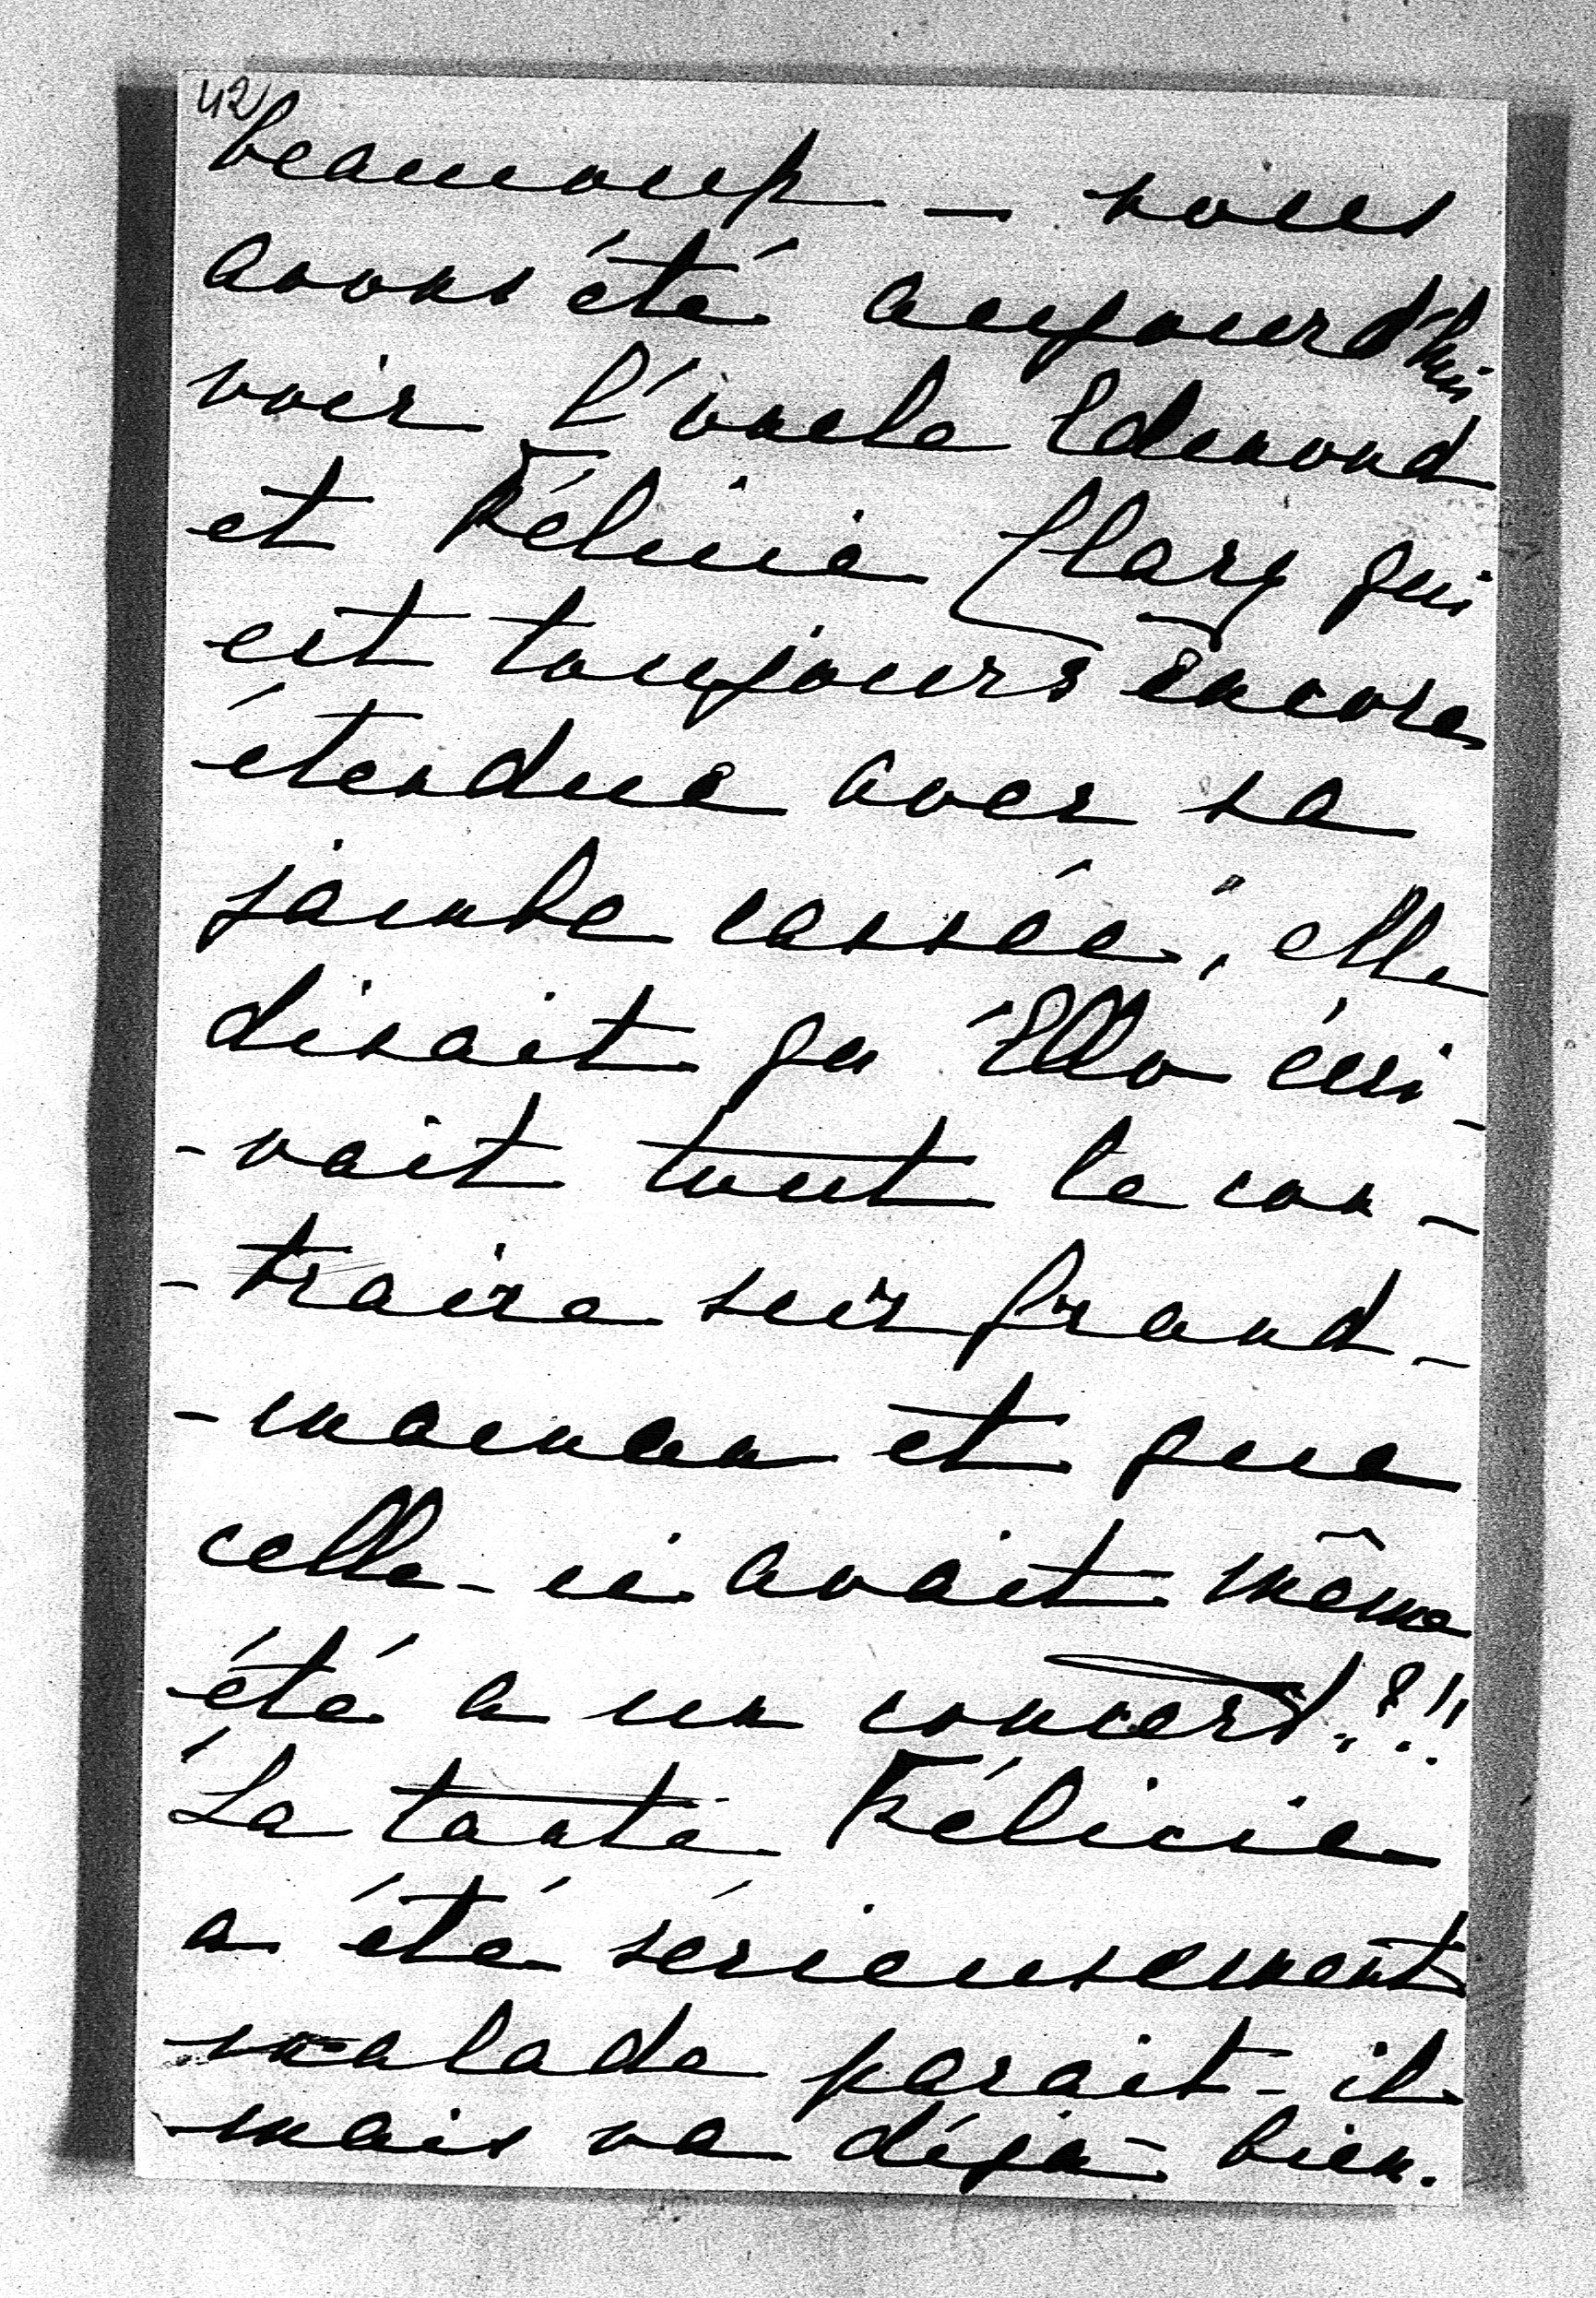 42
beaucoup — nous
avons été aujourd'hui
voir l'oncle Edmond
et Félicie Clary qui
est toujours encore
étendue avec sa
jambe cassée, elle
disait qu'Ello écri-
-vait tout le con-
-traire sur Grand-
-maman et que
celle-ci avait même
été a un concert?!!
La tante Félicie
a été sérieusement
malade parait-il
mais va déjà bien.